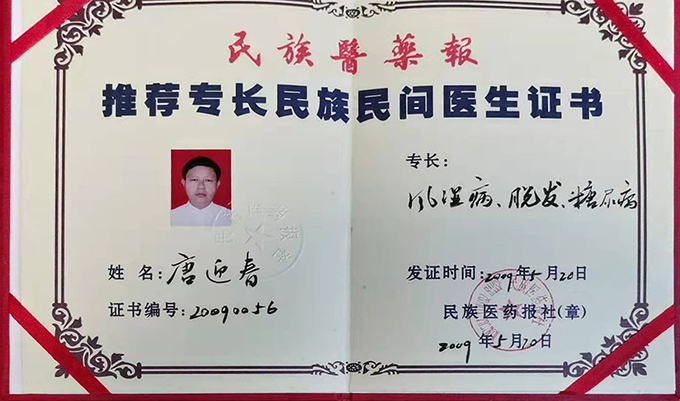 民族醫藥報
推荐专长民族民间医生证书
专长：
风湿病、脱发、糖尿病
姓 名：唐迎春
证书编号：20090056
发证时间：2009年5月20日
民族医药报社(章)
2009年5月20日